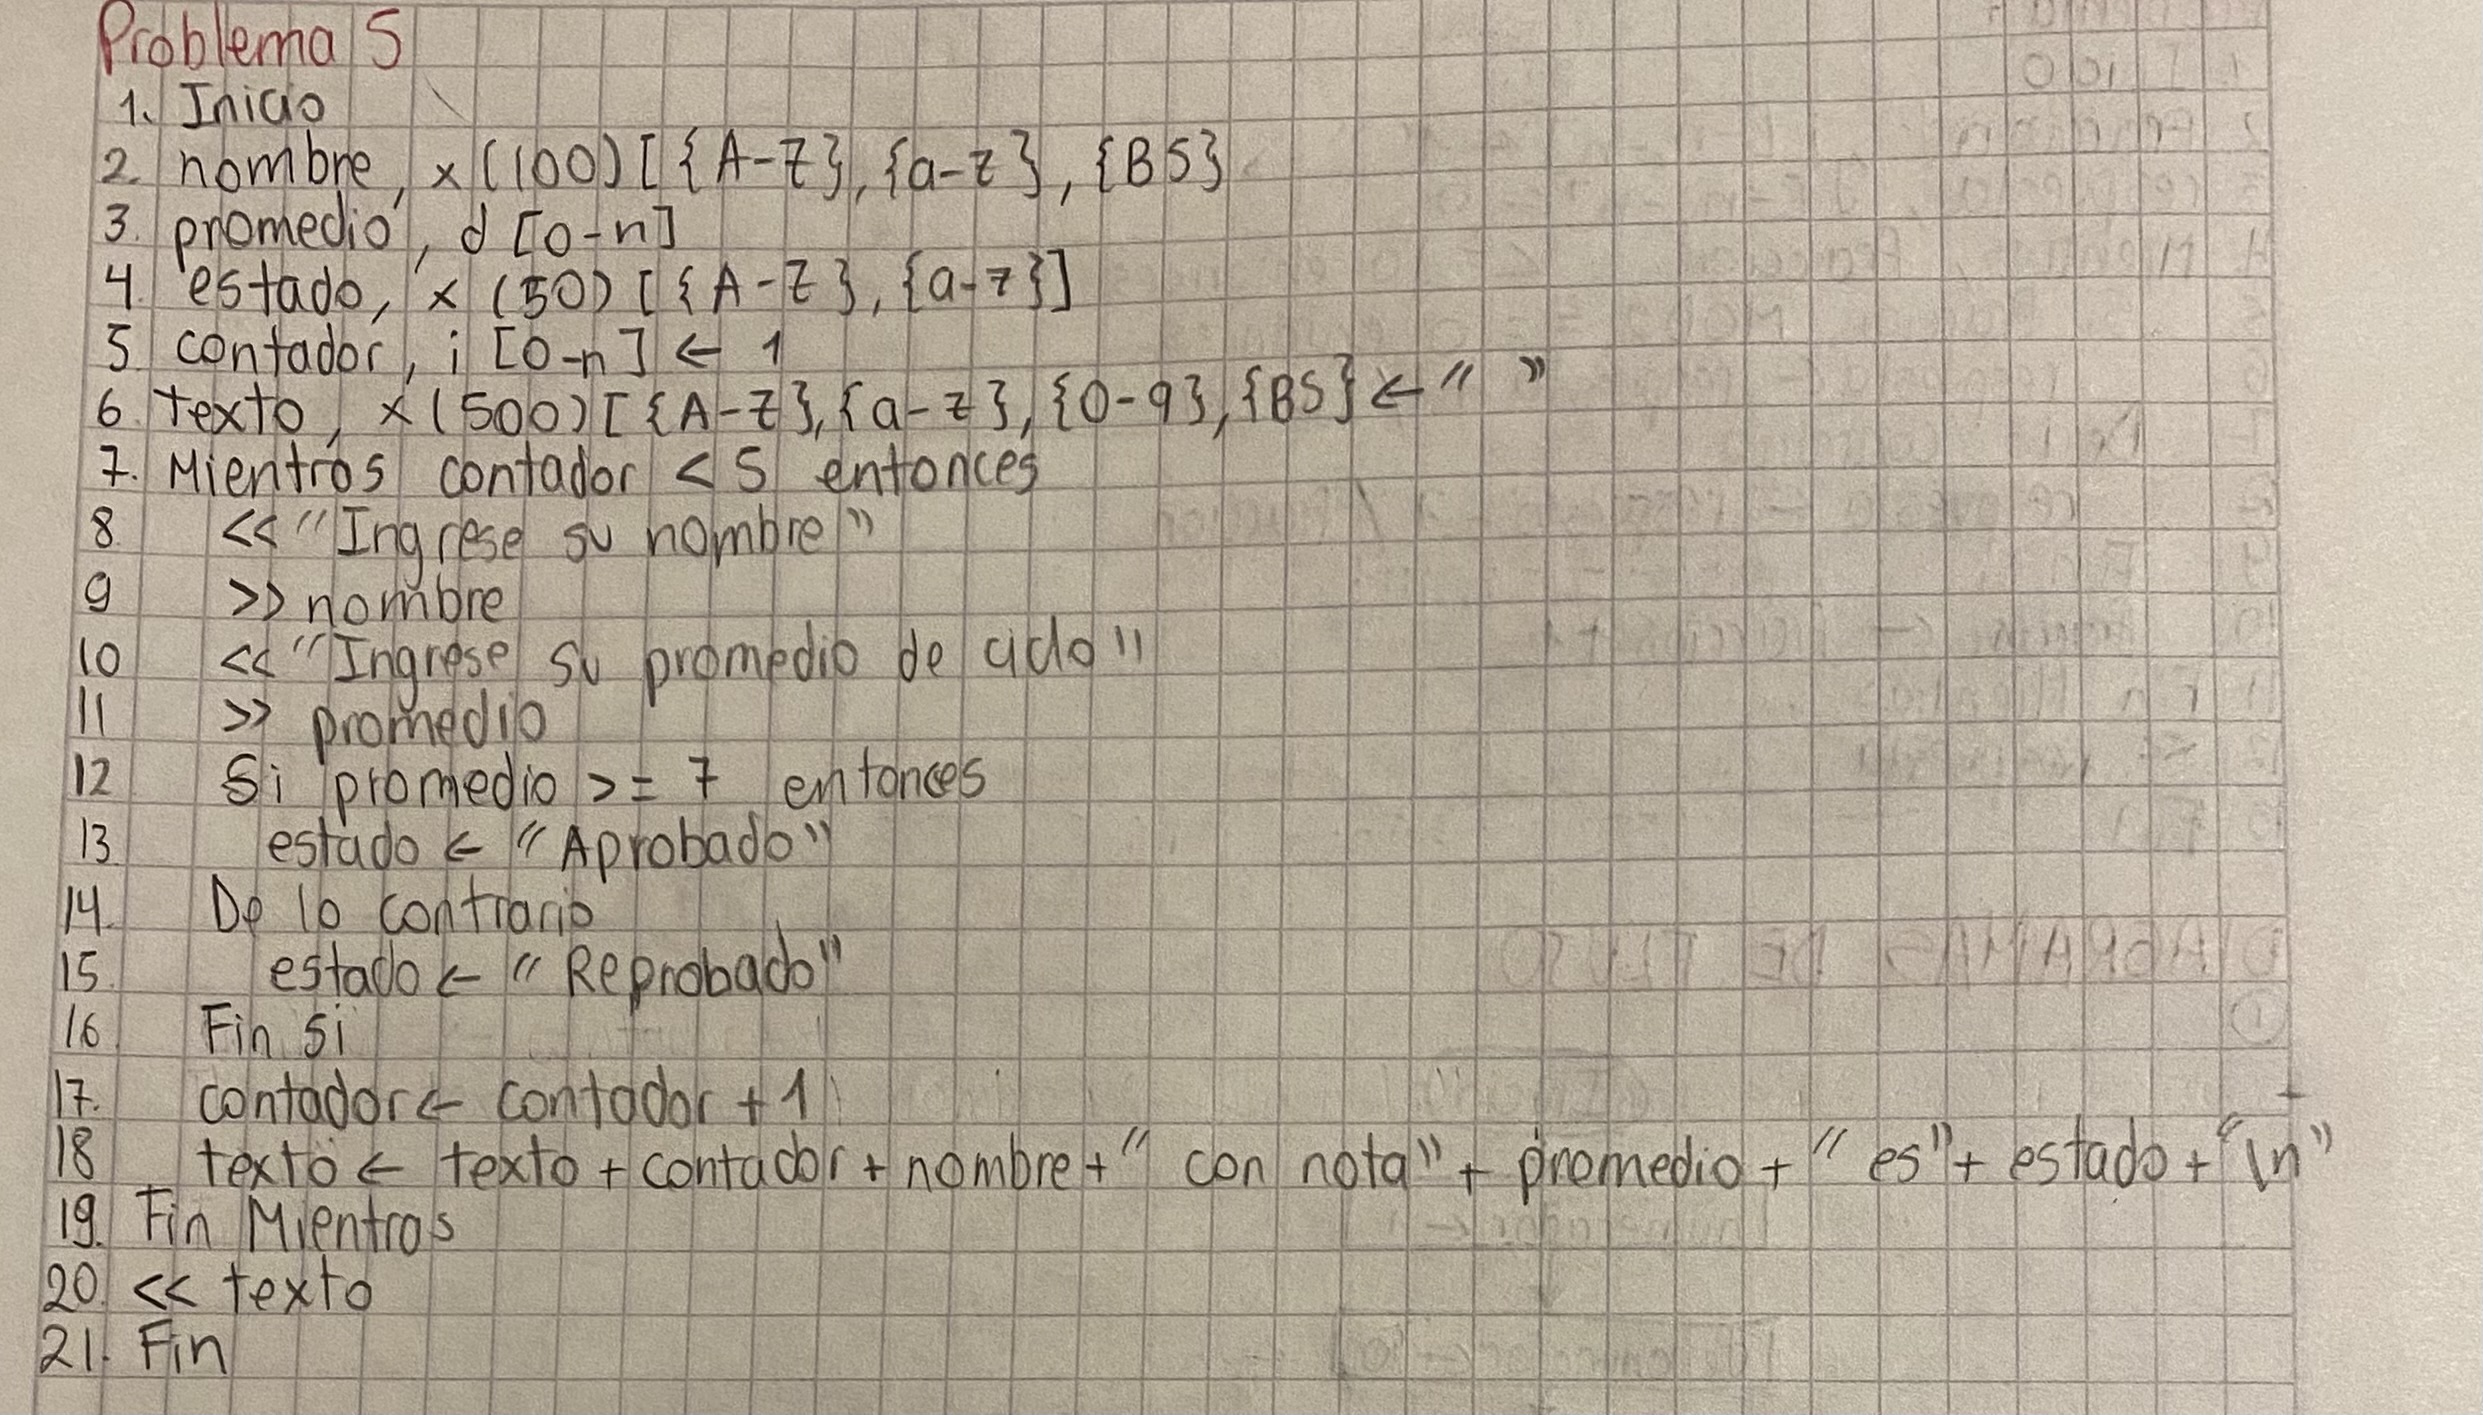 Problema 5
1. Inicio
2. nombre, x(100)[{A-Z},{a-z},{BS}
3. promedio, d [0-n]
4. estado, x (50)[{A-Z},{a-z}]
5. contador, i [0-n] ← 1
6. texto, x(500)[{A-Z},{a-z},{0-9},{BS}← " "
7. Mientras contador < 5 entonces
8. << "Ingrese su nombre"
9 >> nombre
10 << "Ingrese su promedio de ciclo"
11 >> promedio
12 Si promedio >= 7 entonces
13 estado ← "Aprobado"
14. De lo contrario
15 estado ← "Reprobado"
16 Fin si
17. contador ← contador + 1
18 texto ← texto + contador + nombre + " con nota" + promedio + " es" + estado + "\n"
19. Fin Mientras
20. << texto
21. Fin